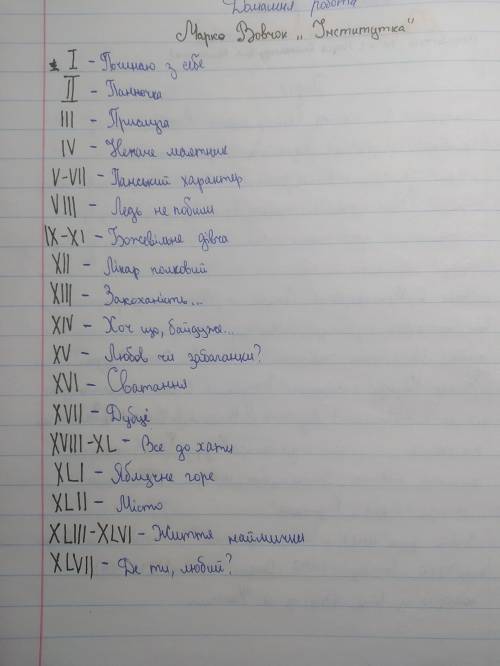 Домашня робота
Марко Вовчок „Інститутка"
I - Починаю з себе
II - Панночка
III - Прислуга
IV - Неначе маятник
V-VII - Панський характер
VIII - Ледь не побили
IX-XI - Божевільне дівча
XII - Лікар полковий
XIII - Закоханість...
XIV - Хоч що, байдуже...
XV - Любов чи забаганки?
XVI - Сватання
XVII - Дубці
XVIII-XL - Все до хати
XLI - Яблучне горе
XLII - Місто
XLIII-XLVI - Життя наймички
XLVII - Де ти, любий?